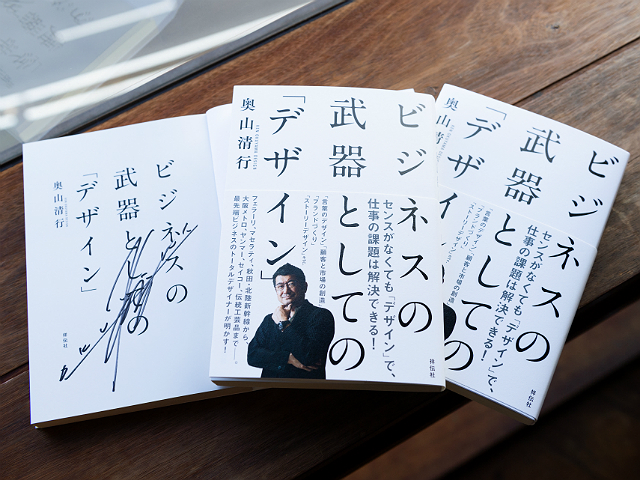 ビジネスの
武器としての
「デザイン」
奥山清行
祥伝社
ビジネスの
武器としての
「デザイン」
奥山清行
KEN OKUYAMA DESIGN
センスがなくても「デザイン」で、
仕事の課題は解決できる!
「言葉のデザイン」「顧客と市場の創造」
「ブランドづくり」
「ストーリーデザイン」
フェラーリ、マセラティ、秋田・北陸新幹線から、
大阪メトロ、ヤンマー、セイコー、伝統工芸品まで――。
最先端ビジネスのトータルデザイナーが明かす!
祥伝社
ビジネスの
武器としての
「デザイン
奥山清行
センスがなくても「デザイン」で、
仕事の課題は解決できる!
「言葉のデザイン」「顧客と市場の創造」
「ブランドづくり」
「ストーリーデザイン」
祥伝社